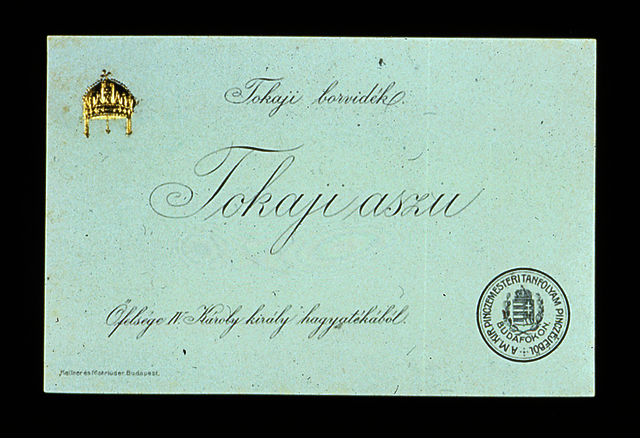 Tokaji borvidék.
Tokaji aszu
Őfelsége IV. Károly király hagyatékából.
A M. KIR. PINCZEMESTERI TANFOLYAM PINCZÉJÉBŐL
BUDAFOKON.
Budapest.